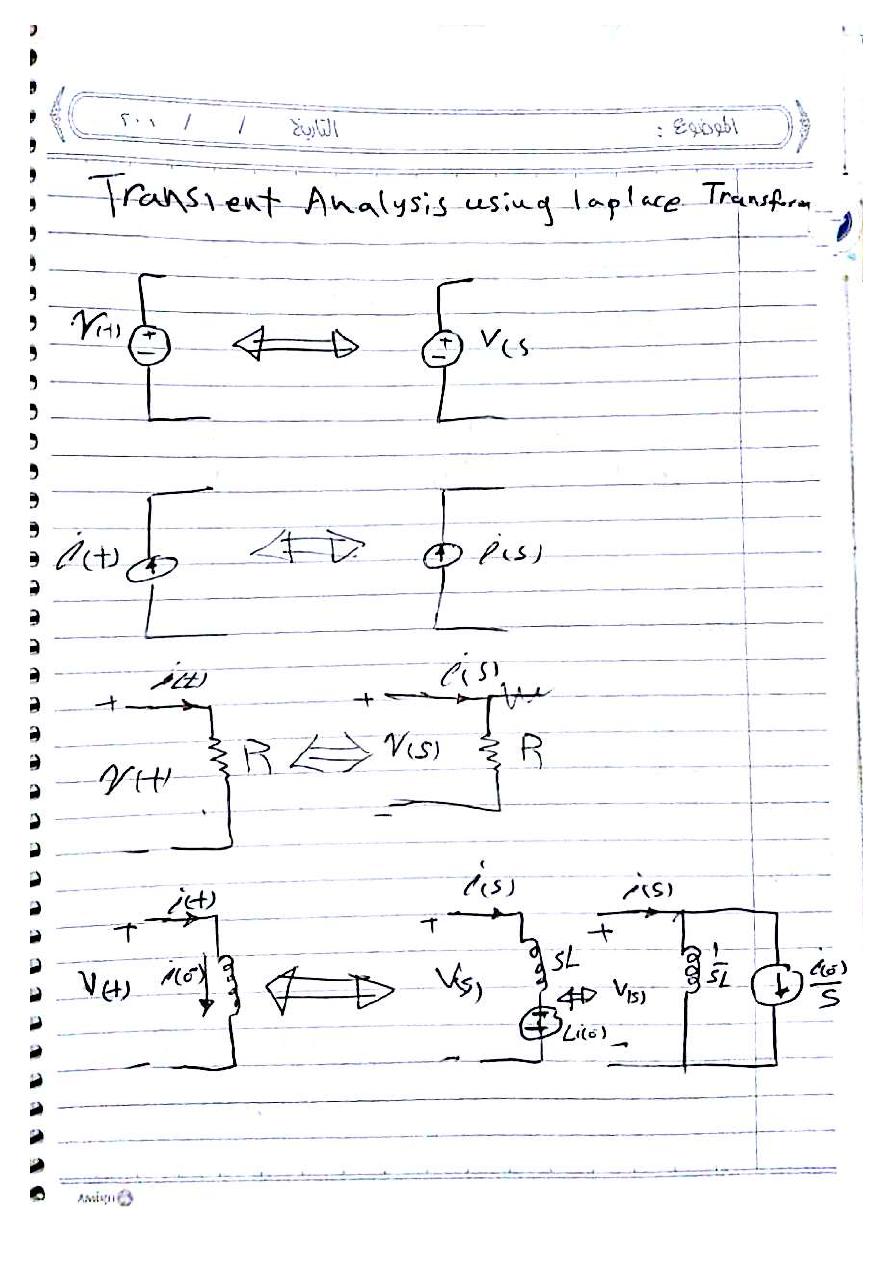 الموضوع : التاريخ / / ٢٠١
Transient Analysis using laplace Transform
V(t) + − + − V(s
i(t) i(s)
i(t) i(s)
+ +
V(t) R V(s) R
− −
i(t) i(s) i(s)
+ + +
V(t) i(0⁻) V(s) SL V(s) 1/SL i(0⁻)/S
Li(0⁻)
− − −